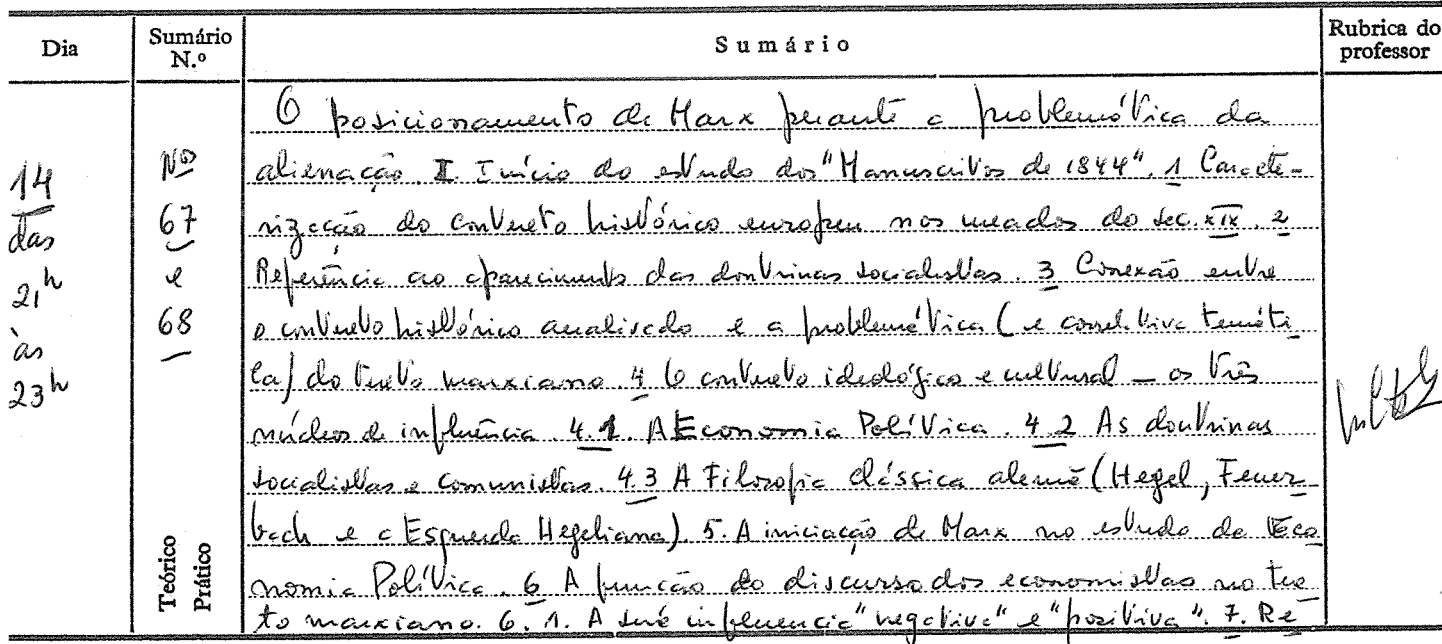 Dia
Sumário N.º
Sumário
Rubrica do professor
14
das
21h
às
23h
Nos
67
e
68
Teórico
Prático
O posicionamento de Marx perante a problemática da
alienação. I. Início do estudo dos "Manuscritos de 1844". 1 Caracte-
rização do contexto histórico europeu nos meados do sec. XIX. 2
Referência ao aparecimento das doutrinas socialistas. 3 Conexão entre
o contexto histórico analisado e a problemática (e correlativa temáti-
ca) do texto marxiano. 4 O contexto ideológico e cultural — os três
núcleos de influência. 4.1. A Economia Política. 4.2 As doutrinas
socialistas e comunistas. 4.3 A Filosofia clássica alemã (Hegel, Feuer-
bach e a Esquerda Hegeliana). 5. A iniciação de Marx no estudo da Eco
nomia Política. 6 A função do discurso dos economistas no tex
to marxiano. 6.1. A sua influencia "negativa" e "positiva". 7. Re